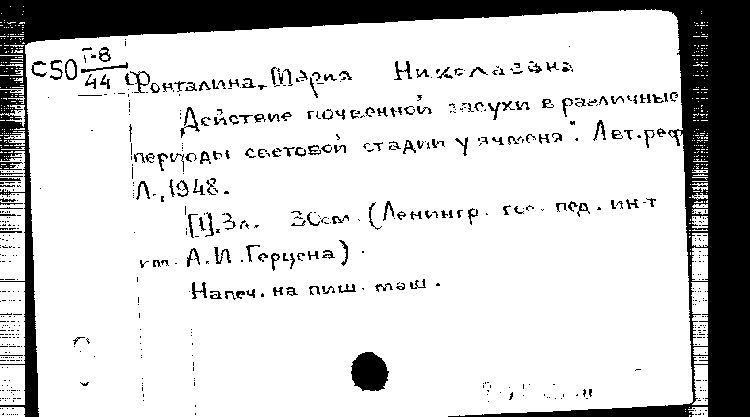 С50 Г-8
44
Фонталина, Мария Николаевна
Действие почвенной засухи в различные
периоды световой стадии у ячменя". Авт.реф
Л., 1948.
[1], 3л. 30см. (Ленингр. гос. пед. ин-т
им. А.И.Герцена).
Напеч. на пиш. маш.